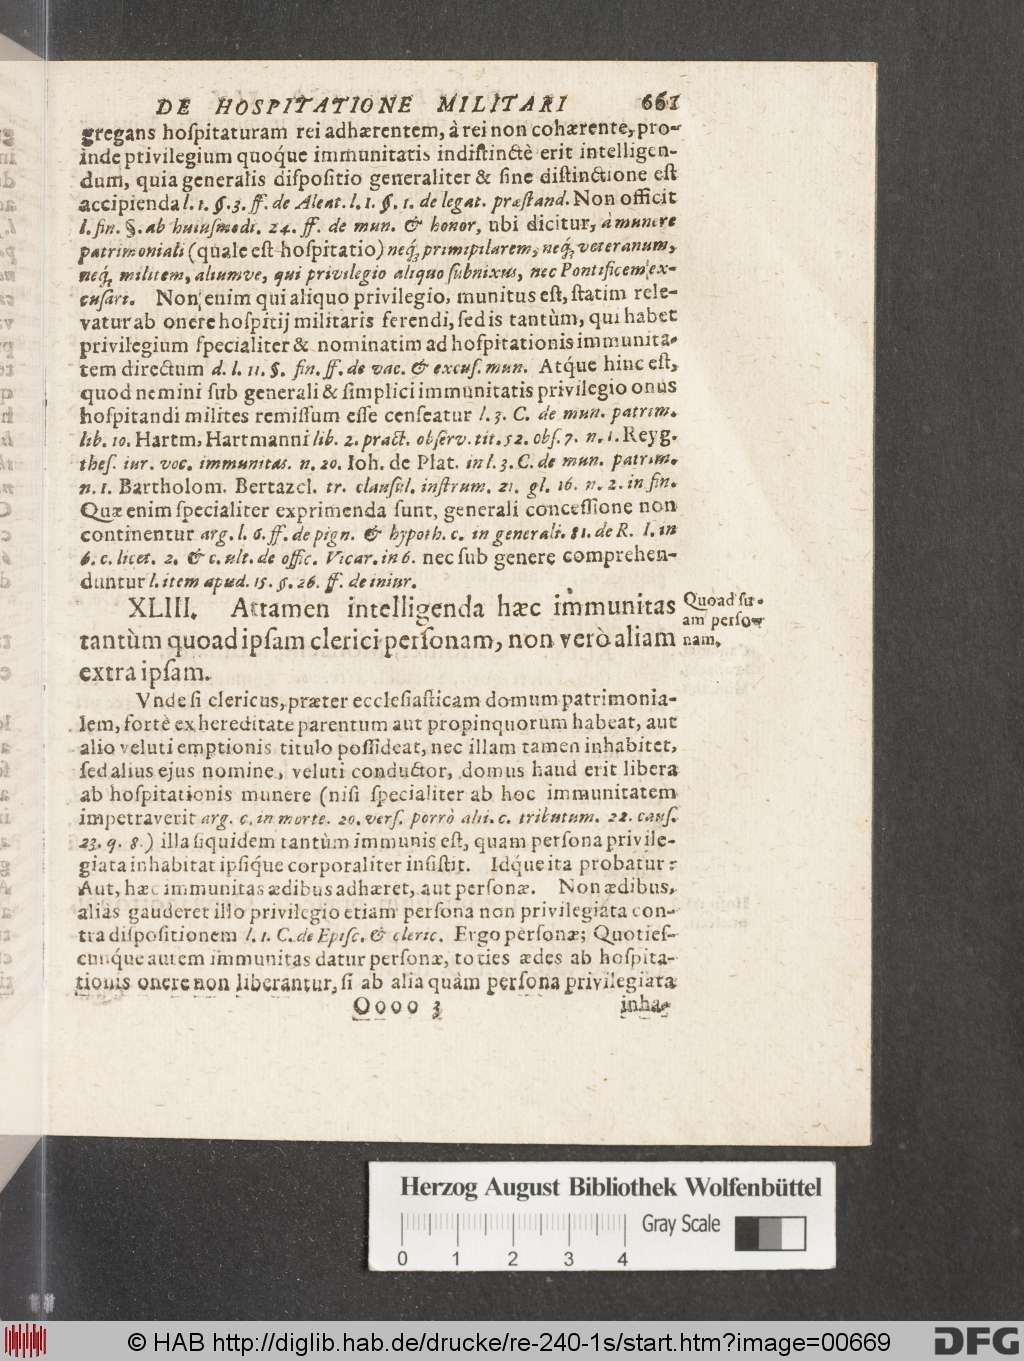 DE HOSPITATIONE MILITARI 661
gregans hoſpitaturam rei adhærentem, à rei non cohærente, pro-
inde privilegium quoq́ue immunitatis indiſtinctè erit intelligen-
dum, quia generalis diſpoſitio generaliter & ſine diſtinctione eſt
accipienda l. 1. §. 3. ff. de Aleat. l. 1. §. 1. de legat. præſtand. Non officit
l. fin. §. ab huiuſmodi. 24. ff. de mun. & honor, ubi dicitur, à munere
patrimoniali (quale eſt hoſpitatio) neq́; primipilarem, neq́; veteranum,
neq́; militem, aliumve, qui privilegio aliquo ſubnixus, nec Pontificem ex-
cuſari. Non enim qui aliquo privilegio, munitus eſt, ſtatim rele-
vatur ab onere hoſpitij militaris ferendi, ſed is tantùm, qui habet
privilegium ſpecialiter & nominatim ad hoſpitationis immunita-
tem directum d. l. 11. §. fin. ff. de vac. & excuſ. mun. Atq́ue hinc eſt,
quod nemini ſub generali & ſimplici immunitatis privilegio onus
hoſpitandi milites remiſſum eſſe cenſeatur l. 3. C. de mun. patrim.
lib. 10. Hartm, Hartmanni lib. 2. pract. obſerv. tit. 52. obſ. 7. n. 1. Reyg.
theſ. iur. voc. immunitas. n. 20. Ioh. de Plat. in l. 3. C. de mun. patrim.
n. 1. Bartholom. Bertazcl. tr. clauſul. inſtrum. 21. gl. 16. n. 2. in fin.
Quæ enim ſpecialiter exprimenda ſunt, generali conceſſione non
continentur arg. l. 6. ff. de pign. & hypoth. c. in generali. 81. de R. I. in
6. c. licet. 2. & c. ult. de offic. Vicar. in 6. nec ſub genere comprehen-
duntur l. item apud. 15. §. 26. ff. de iniur.
XLIII. Attamen intelligenda hæc immunitas
tantùm quoad ipſam clerici perſonam, non verò aliam
extra ipſam.
Quoad ſu-
am perſo-
nam.
Vnde ſi clericus, præter eccleſiaſticam domum patrimonia-
lem, fortè ex hereditate parentum aut propinquorum habeat, aut
alio veluti emptionis titulo poſſideat, nec illam tamen inhabitet,
ſed alius ejus nomine, veluti conductor, domus haud erit libera
ab hoſpitationis munere (niſi ſpecialiter ab hoc immunitatem
impetraverit arg. c. in morte. 20. verſ. porrò alii. c. tributum. 22. cauſ.
23. q. 8.) illa ſiquidem tantùm immunis eſt, quam perſona privile-
giata inhabitat ipſiq́ue corporaliter inſiſtit. Idq́ue ita probatur:
Aut, hæc immunitas ædibus adhæret, aut perſonæ. Non ædibus,
aliàs gauderet illo privilegio etiam perſona non privilegiata con-
tra diſpoſitionem l. 1. C. de Epiſc. & cleric. Ergo perſonæ; Quotieſ-
cunq́ue autem immunitas datur perſonæ, toties ædes ab hoſpita-
tionis onere non liberantur, ſi ab alia quàm perſona privilegiata
Oooo 3 inha-
Herzog August Bibliothek Wolfenbüttel
Gray Scale
0 1 2 3 4
© HAB http://diglib.hab.de/drucke/re-240-1s/start.htm?image=00669
DFG